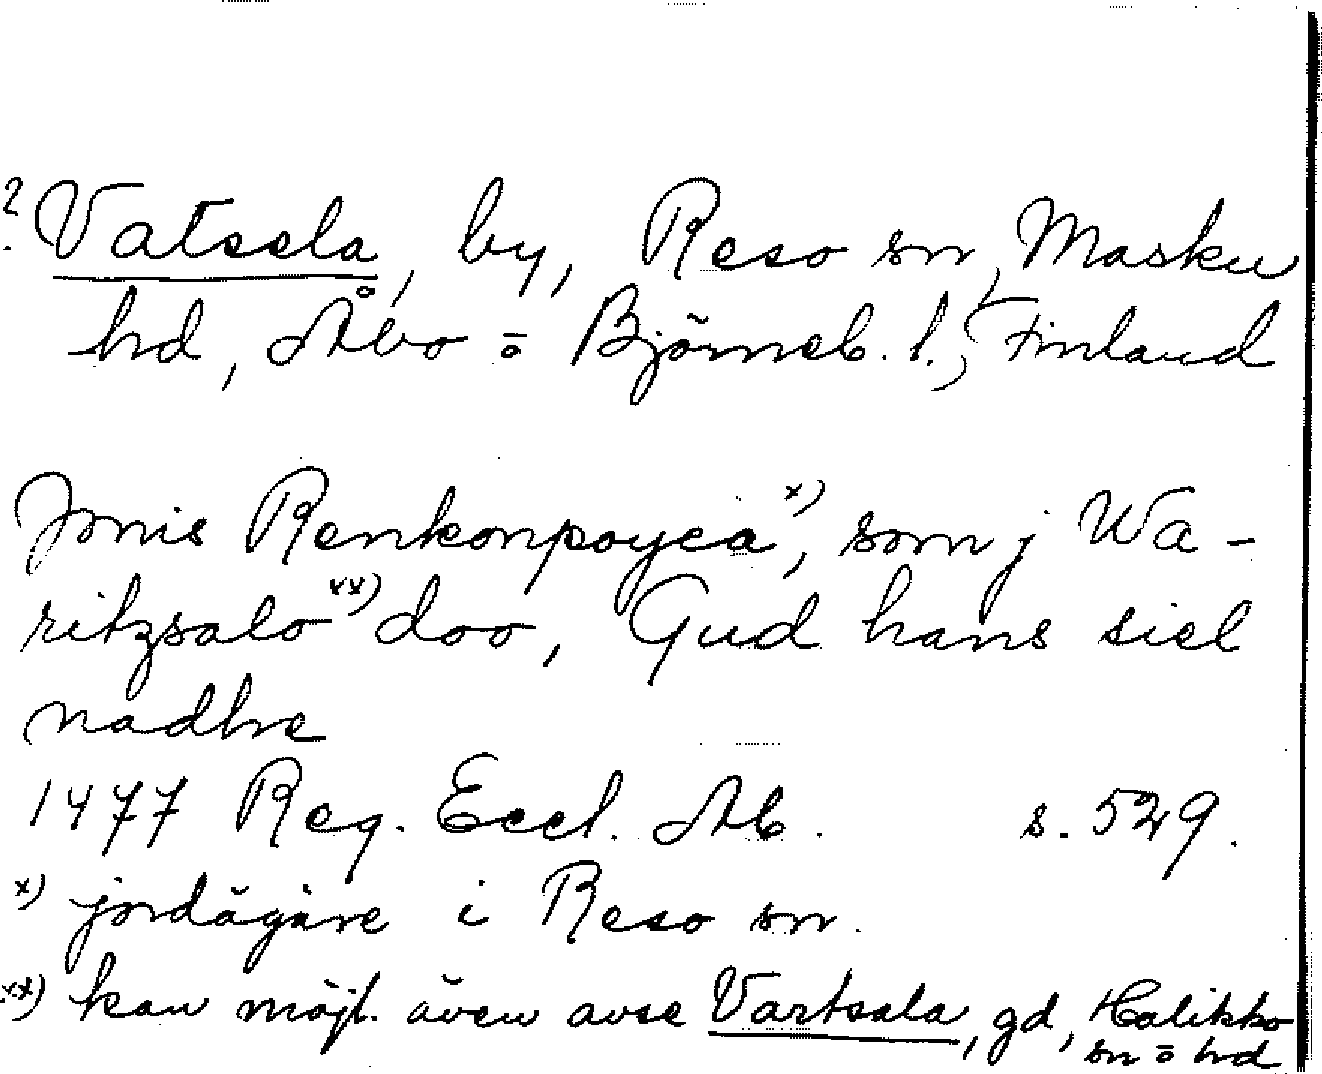 ? Vatsela, by, Reso sn, Masku
hd, Åbo o Björneb. l., Finland
Jönis Renkonpoyca x), som j Wa-
ritzsalo xx) doo, Gud hans siel
nadhe
1477 Reg. Eccl. Ab. s. 529.
x) jordägare i Reso sn.
xx) kan möjl. även avse Vartsala, gd, Halikko
sn o hd